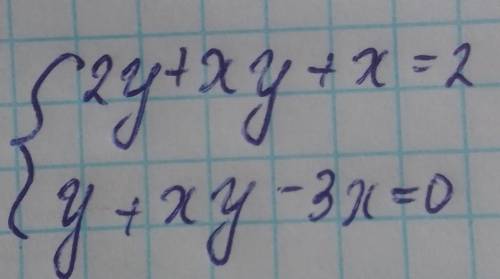 2y+xy+x=2
y+xy-3x=0